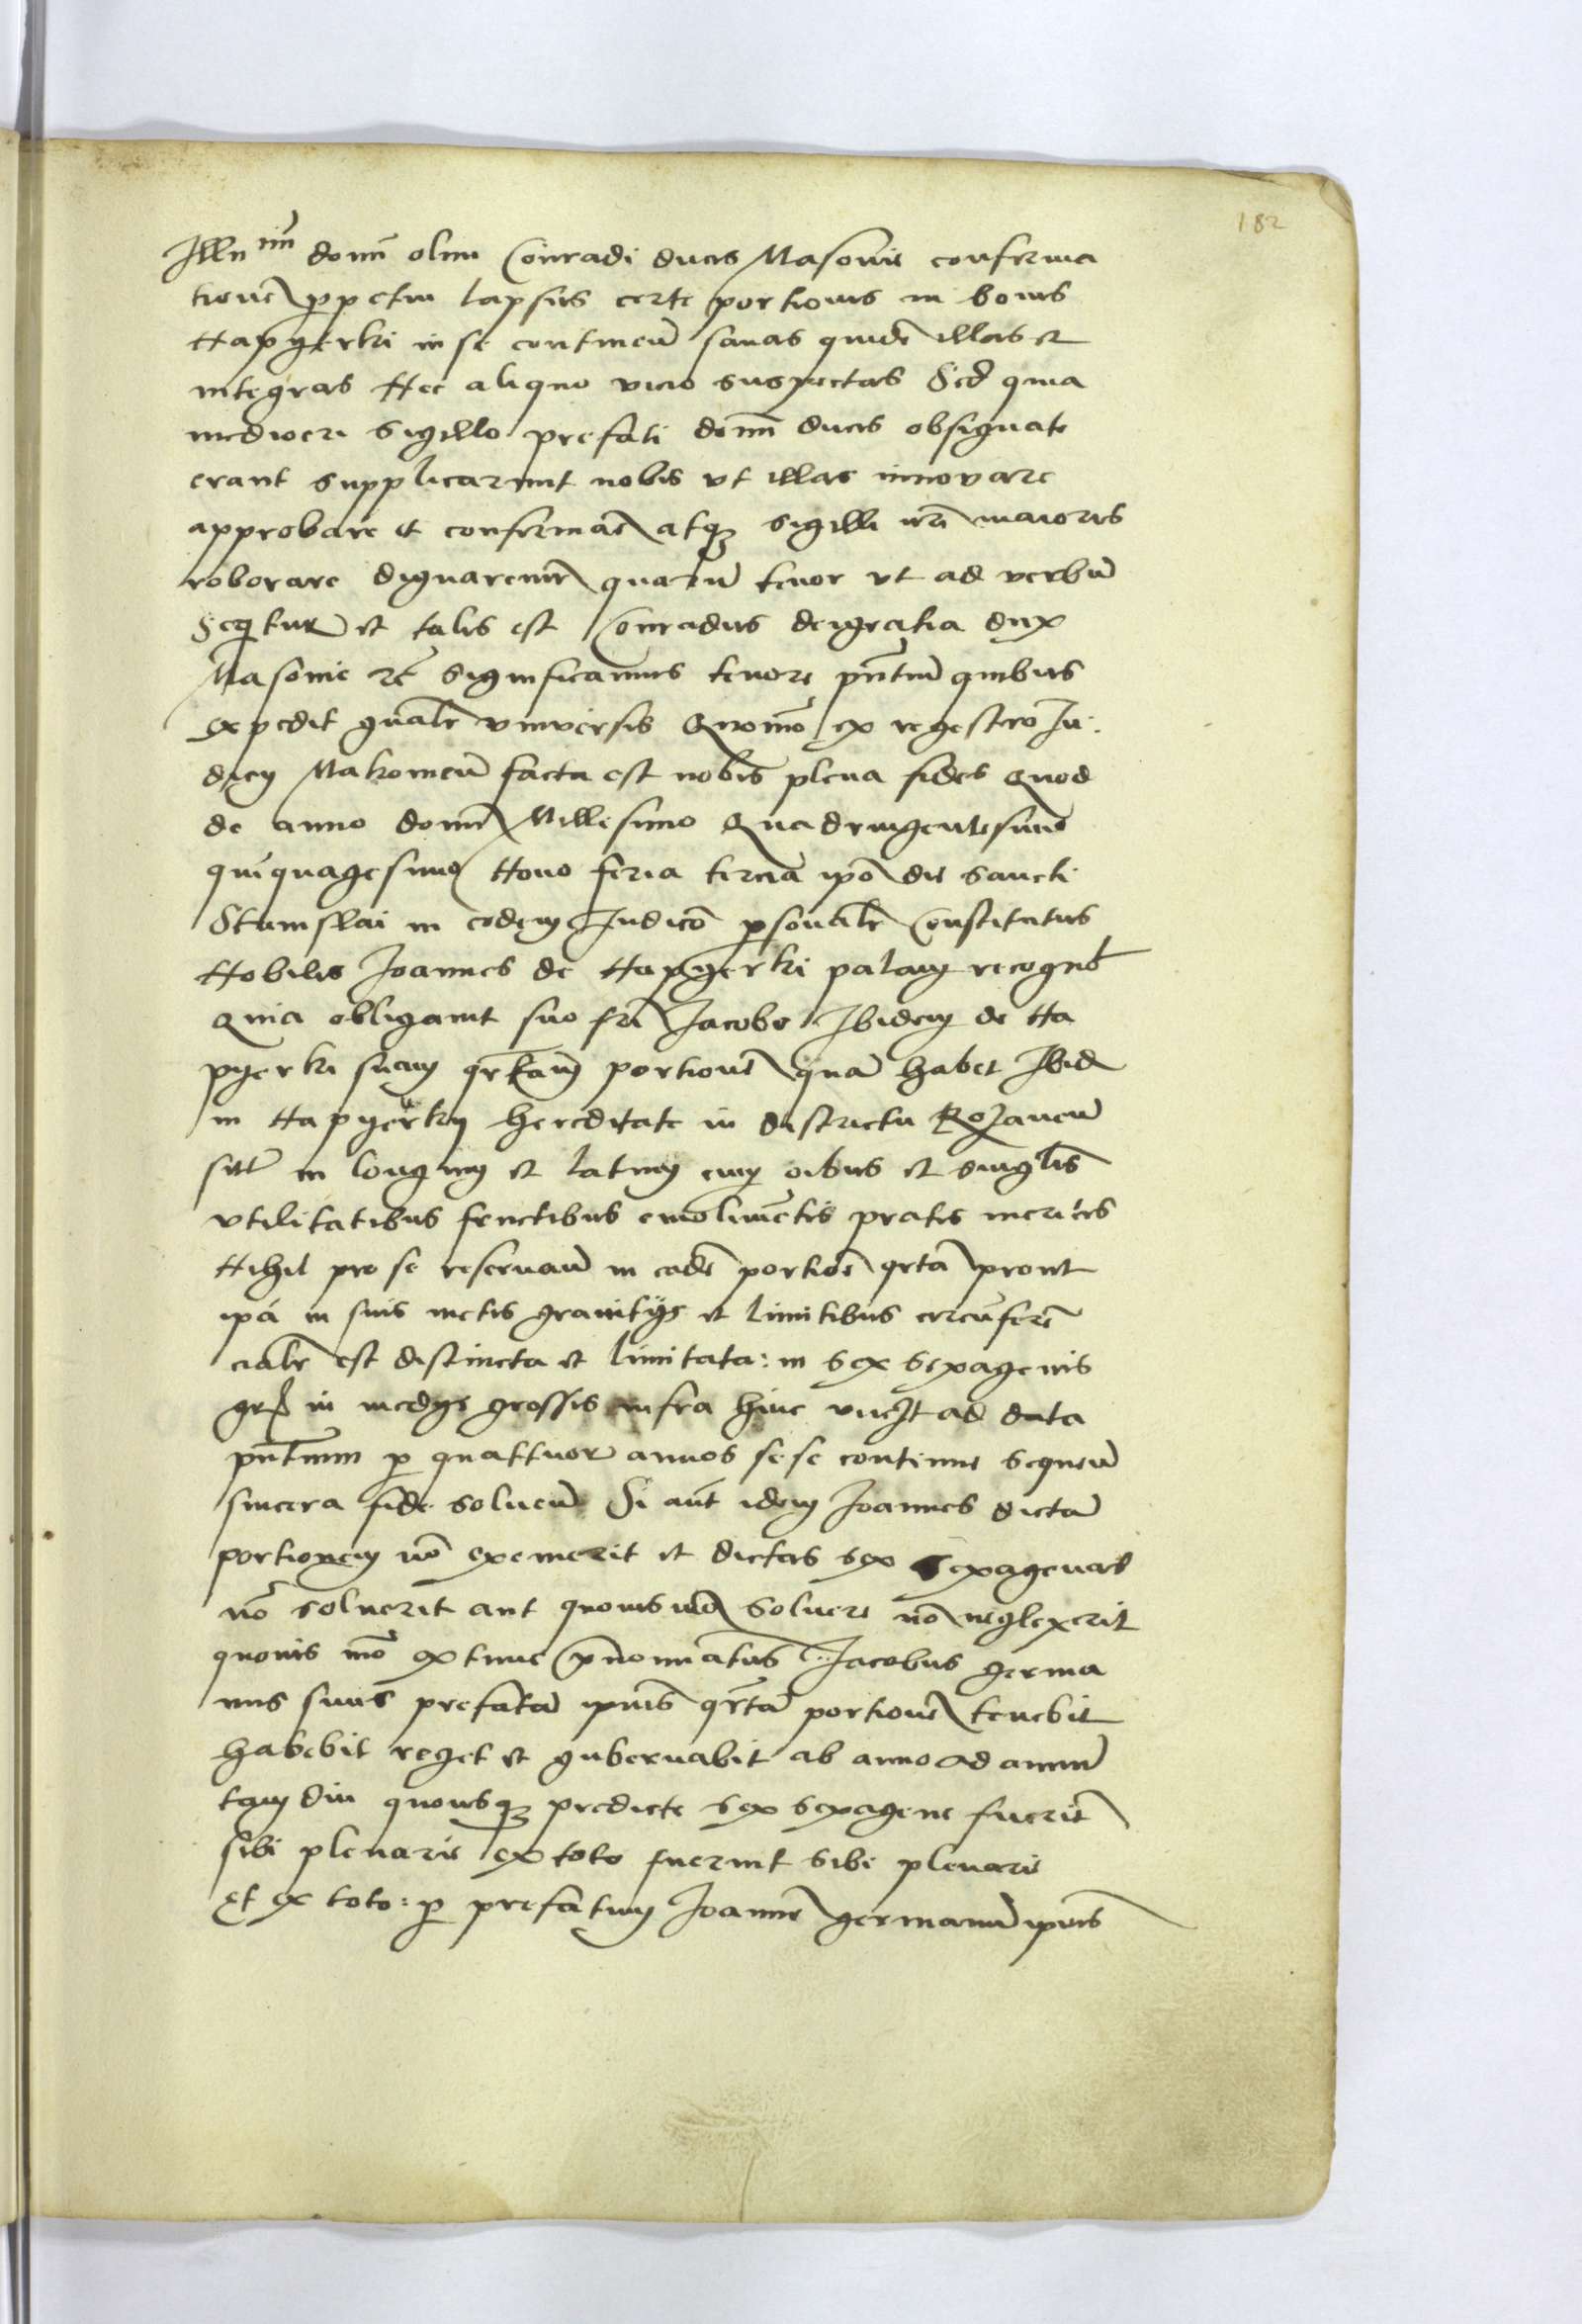 182
Illu^im domi olim Conradi ducis Masovie confirma
tionē ppetui lapsus certe portionis in bonis
Napyerki in se continen̄ sanas quidē illas et
integras Nec aliquo vicio suspectas Sed quia
mediocri sigillo prefati domī ducis obsignate
erant supplicarunt nobis vt illas innovare
approbare et confirmar̄ atq3 sigilli nr̄i maioris
roborare dignaremr̄ quarū tenor vt ad verbū
Seqitur et talis est Conradus dei gratia dux
Masovie rc̄ significamus tenore pn̄tiū quibus
expedit gn̄alr̄ vniversis Quomō ex regestro Iu-
dicy Makovien̄ facta est nobis plena fides Quod
de anno domī Millesimo Quadringentesimo
quīquagesimo Nono feria tercia ipō die sancti
Stanislai in eodem Iudicō psonalr̄ Constitutus
Nobilis Joannes de Napyerki palam recogn̄t
Quia obligavit suo fr̄i Jacobo Ibidem de Na
pyerki suam qr̄tam portionē quā habet Ibid
in Napyerky hereditate in districtu Rozanen̄
sitā in longum et latum cum oībus et singlis
vtilitatibus fructibus emolimētis pratis mericis
Nihil pro se reservan̄ in eadē portiōe qrtā prout
ipā in suis metis granitys et limitibus circūferē
cialr̄ est distincta et limitata: in sex sexagenis
gr̄ in medys grossis infra hinc vnc̄ It ad data
pn̄tium p quattuor annos sese continue sequen̄
sincera fide soluen̄ Si aut̄ idem Joannes dictā
portionem nō exemerit et dictas sex sexagenas
nō solverit aut quovismō solvere nō neglexerit
quovis mō extunc p̄nominatus Jacobus germa
nus suus prefatā ipius qr̄tā portionē tenebit
habebit reget et gubernabit ab anno ad annū
tam diu quousq3 predicte sex sexagene fuerit
sibi plenarie ex toto fuerint sibi plenarie
et ex toto: p prefatum Joannē germanū ipius